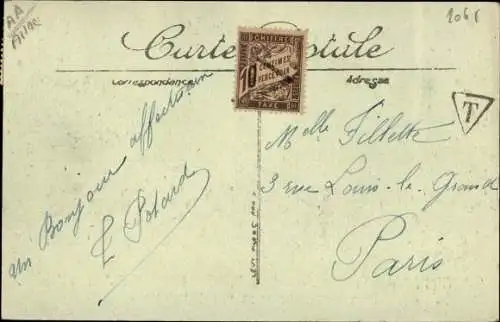 AA
2061
Carte Postale
Correspondance
Adresse
CHIFFRE
10
CENTIMES
À PERCEVOIR
TAXE
T
un Bonjour affectueux
L Potard
Melle Fillette
3 rue Louis-le-Grand
Paris